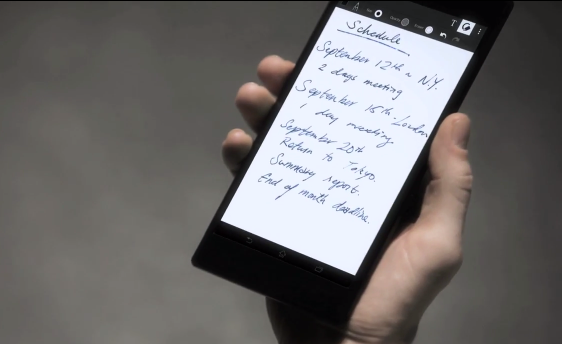 Schedule
September 12th ~ N.Y.
2 days meeting
September 15th - London
1 day meeting.
September 20th
Return to Tokyo.
Summary report.
End of month deadline.